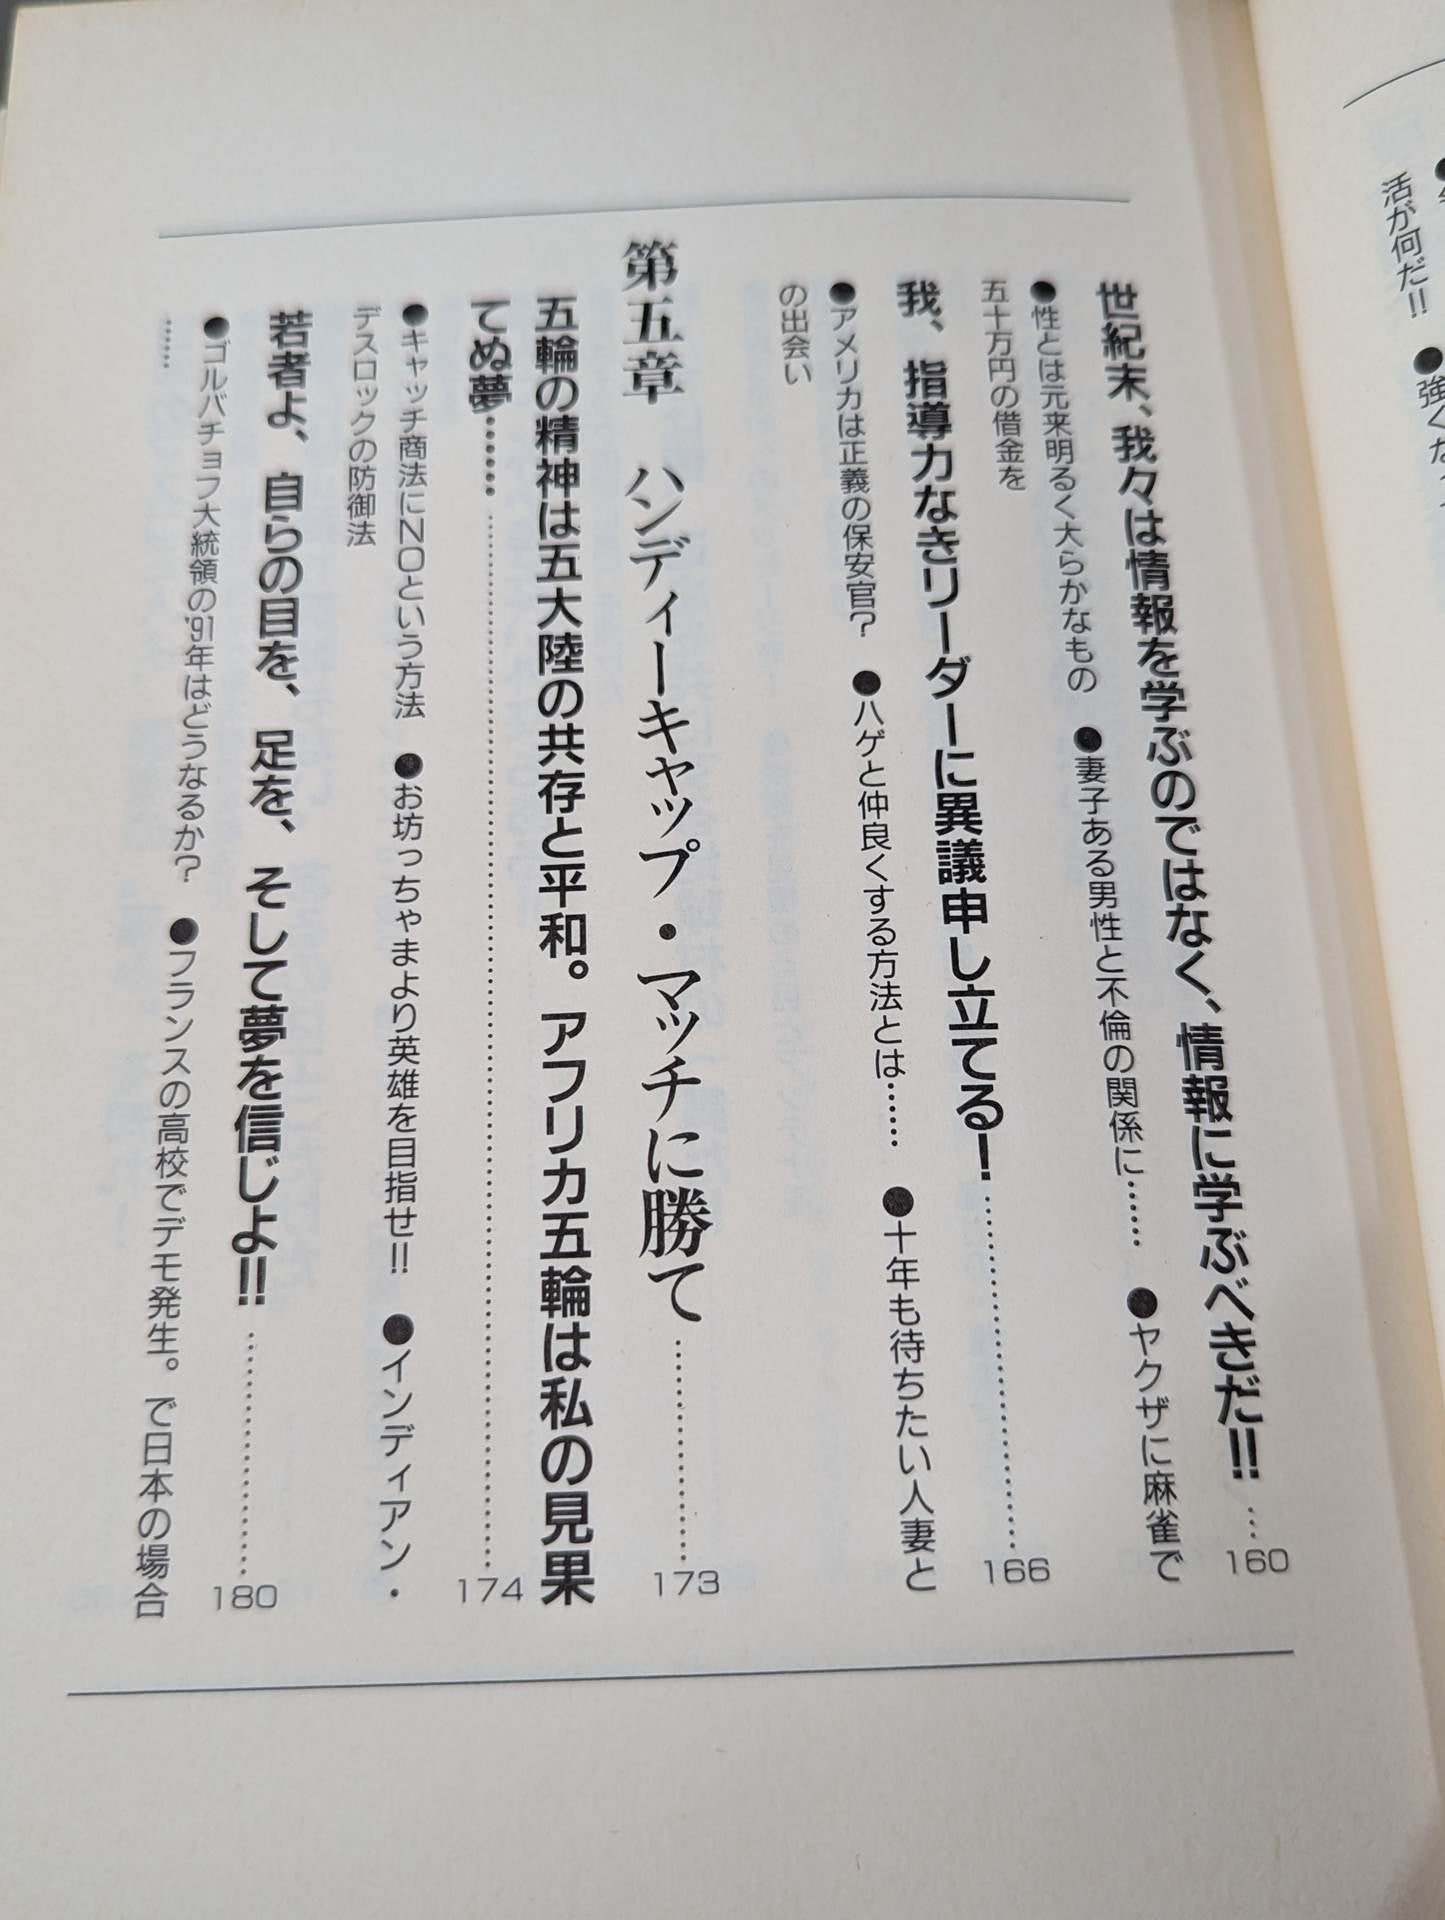 活が何だ!!
●強くな
世紀末、我々は情報を学ぶのではなく、情報に学ぶべきだ!!……160
●性とは元来明るく大らかなもの　●妻子ある男性と不倫の関係に……　●ヤクザに麻雀で
五十万円の借金を
我、指導力なきリーダーに異議申し立てる！……166
●アメリカは正義の保安官？　●ハゲと仲良くする方法とは……　●十年も待ちたい人妻と
の出会い
第五章　ハンディーキャップ・マッチに勝て……173
五輪の精神は五大陸の共存と平和。アフリカ五輪は私の見果
てぬ夢……174
●キャッチ商法にＮＯという方法　●お坊っちゃまより英雄を目指せ!!　●インディアン・
デスロックの防御法
若者よ、自らの目を、足を、そして夢を信じよ!!……180
●ゴルバチョフ大統領の'91年はどうなるか？　●フランスの高校でデモ発生。で日本の場合
……